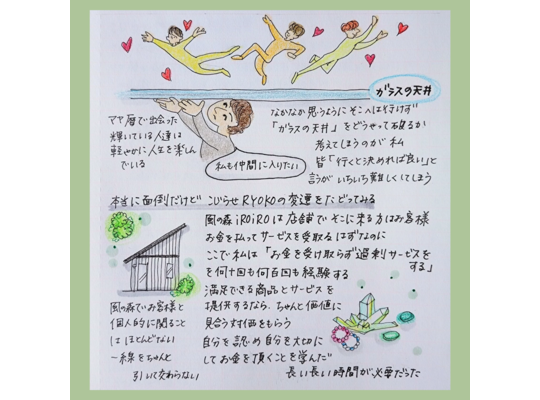 ガラスの天井
マヤ暦で出会った
輝いている人達は
軽やかに人生を楽しん
でいる
私も仲間に入りたい
なかなか思うようにそこへは行けず
「ガラスの天井」をどうやって破るか
考えてしまうのが私
皆「行くと決めれば良い」と
言うがいちいち難しくしてしまう
本当に面倒だけど こじらせRYOKOの変遷をたどってみる
風の森iROiROは店舗で そこに来る方はお客様
お金を払ってサービスを受取るはずなのに
ここで私は「お金を受け取らず過剰サービスを
する」
を何十回も何百回も経験する
満足できる商品とサービスを
提供するなら、ちゃんと価値に
見合う対価をもらう
自分を認め自分を大切に
してお金を頂くことを学んだ
長い長い時間が必要だった
風の森でお客様と
個人的に関ること
はほとんどない
〜線をちゃんと
引いて交わらない